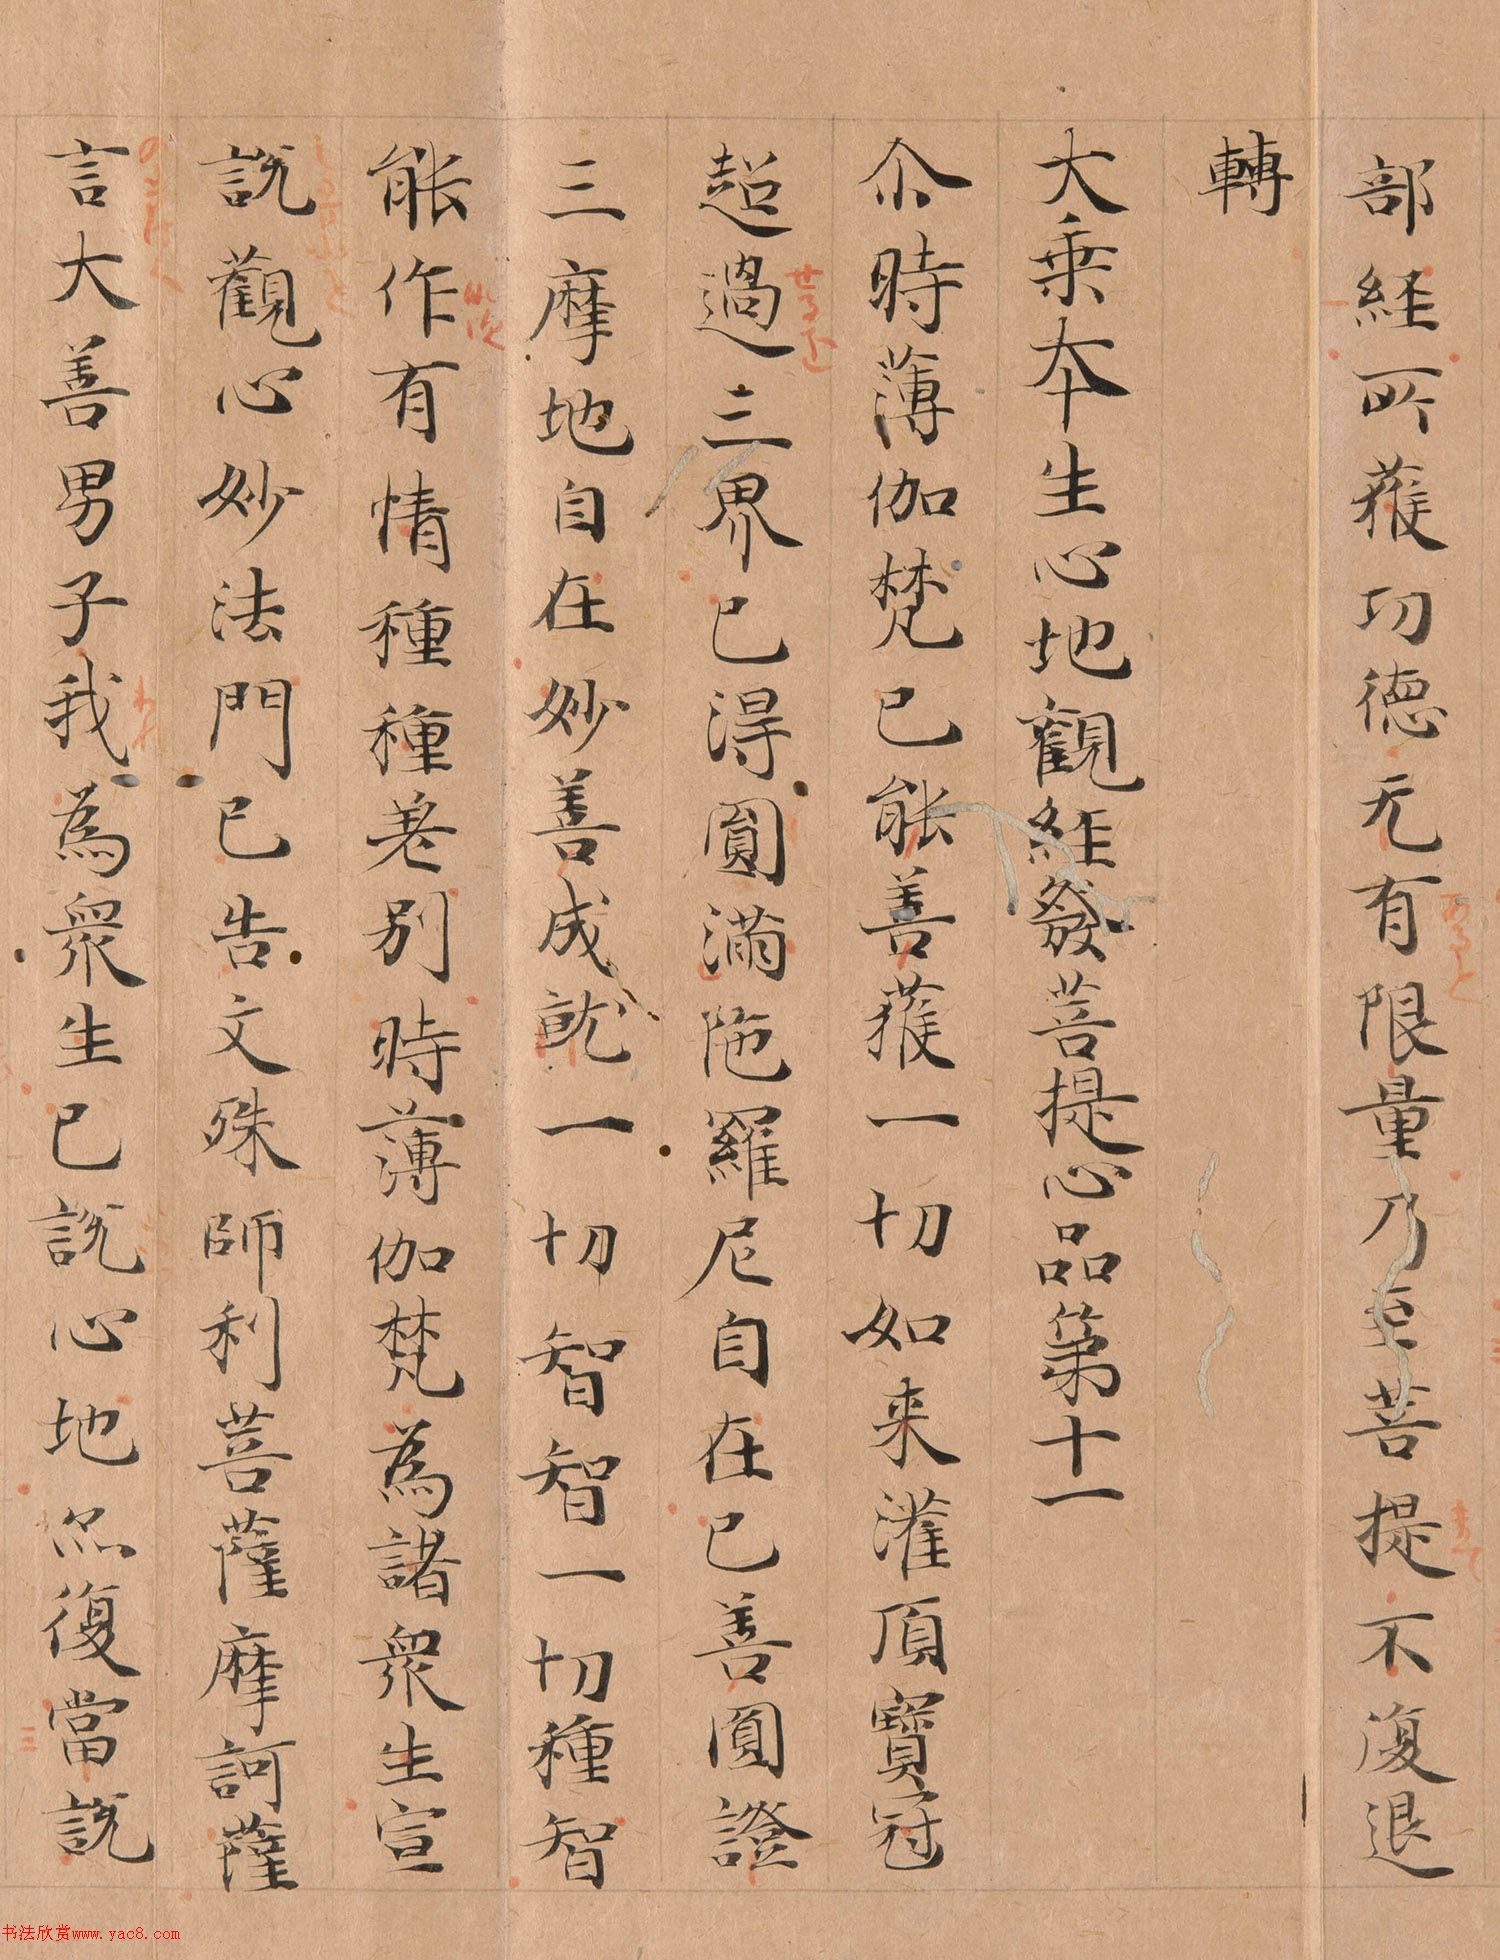 部経所獲功徳无有限量乃至菩提不復退
轉
大乗本生心地觀経發菩提心品第十一
尒時薄伽梵已能善獲一切如来灌頂寶冠
超過三界已得圓滿陁羅尼自在已善圓證
三摩地自在妙善成就一切智智一切種智
能作有情種種差別時薄伽梵為諸衆生宣
説觀心妙法門已告文殊師利菩薩摩訶薩
言大善男子我為衆生已説心地亦復當説
书法欣赏www.yac8.com